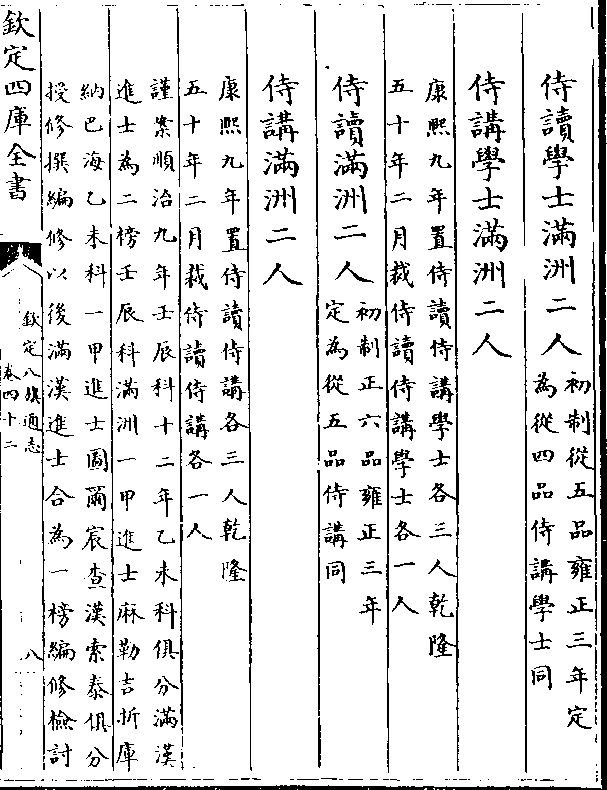 侍讀學士滿洲二人初制從五品雍正三年定
為從四品侍講學士同
侍講學士滿洲二人
康熙九年置侍讀侍講學士各三人乾隆
五十年二月裁侍讀侍講學士各一人
侍讀滿洲二人初制正六品雍正三年
定為從五品侍講同
侍講滿洲二人
康熙九年置侍讀侍講各三人乾隆
五十年二月裁侍讀侍講各一人
謹案順治九年壬辰科十二年乙未科俱分滿漢
進士為二榜壬辰科滿洲一甲進士麻勒吉折庫
納巴海乙未科一甲進士圖爾宸查漢索泰俱分
授修撰編修以後滿漢進士合為一榜編修檢討
欽定四庫全書
欽定八旗通志
卷四十二
八